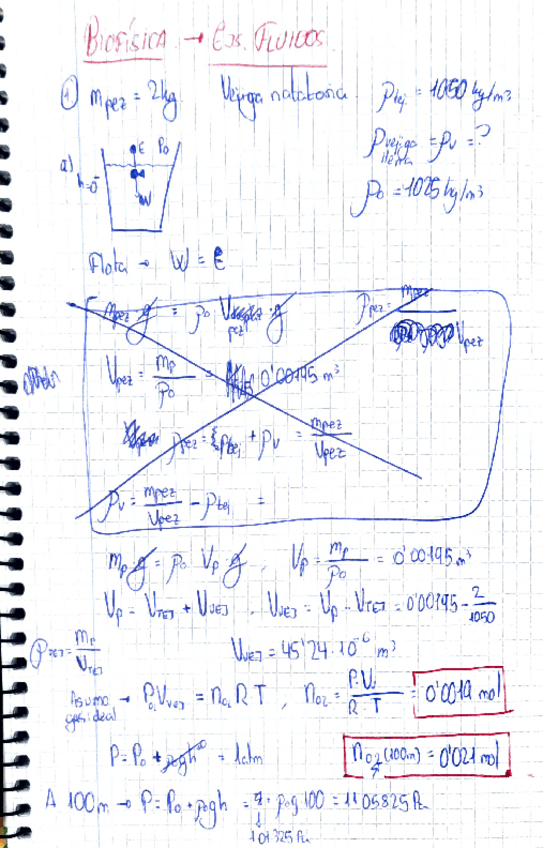 BIOFÍSICA → EJS. FLUIDOS
① m_pez = 2kg Vejiga natatoria ρ_tej = 1050 kg/m³
ρ_vejiga llena = ρ_v = ?
a) h=0 E P₀ W
ρ₀ = 1025 kg/m³
Flota → W = E
m_pez g = ρ₀ V_pez g ρ_pez = m_pez / V_pez
V_pez = m_p / ρ₀ = 0'00195 m³
ρ_pez = ρ_tej + ρ_v = m_pez / V_pez
ρ_v = m_pez / V_pez - ρ_tej =
m_p g = ρ₀ V_p g , V_p = m_p / ρ₀ = 0'00195 m³
V_p = V_TEJ + V_VEJ , V_VEJ = V_p - V_TEJ = 0'00195 - 2/1050
ρ_TEJ = m_p / V_TEJ V_VEJ = 45'24·10⁻⁶ m³
Asumo gas ideal → P₀ V_VEJ = n_O₂ R T , n_O₂ = P·V_v / R·T = 0'0019 mol
P = P₀ + ρ₀gh = 1atm n_O₂ (100m) = 0'021 mol
A 100m → P = P₀ + ρ₀gh = + ρ₀g 100 = 1105825 Pa
101325 Pa